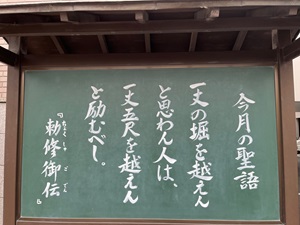 今月の聖語
一丈の堀を越えん
と思わん人は、
一丈五尺を越えん
と励むべし。
『勅修御伝』
ちょくしゅごでん